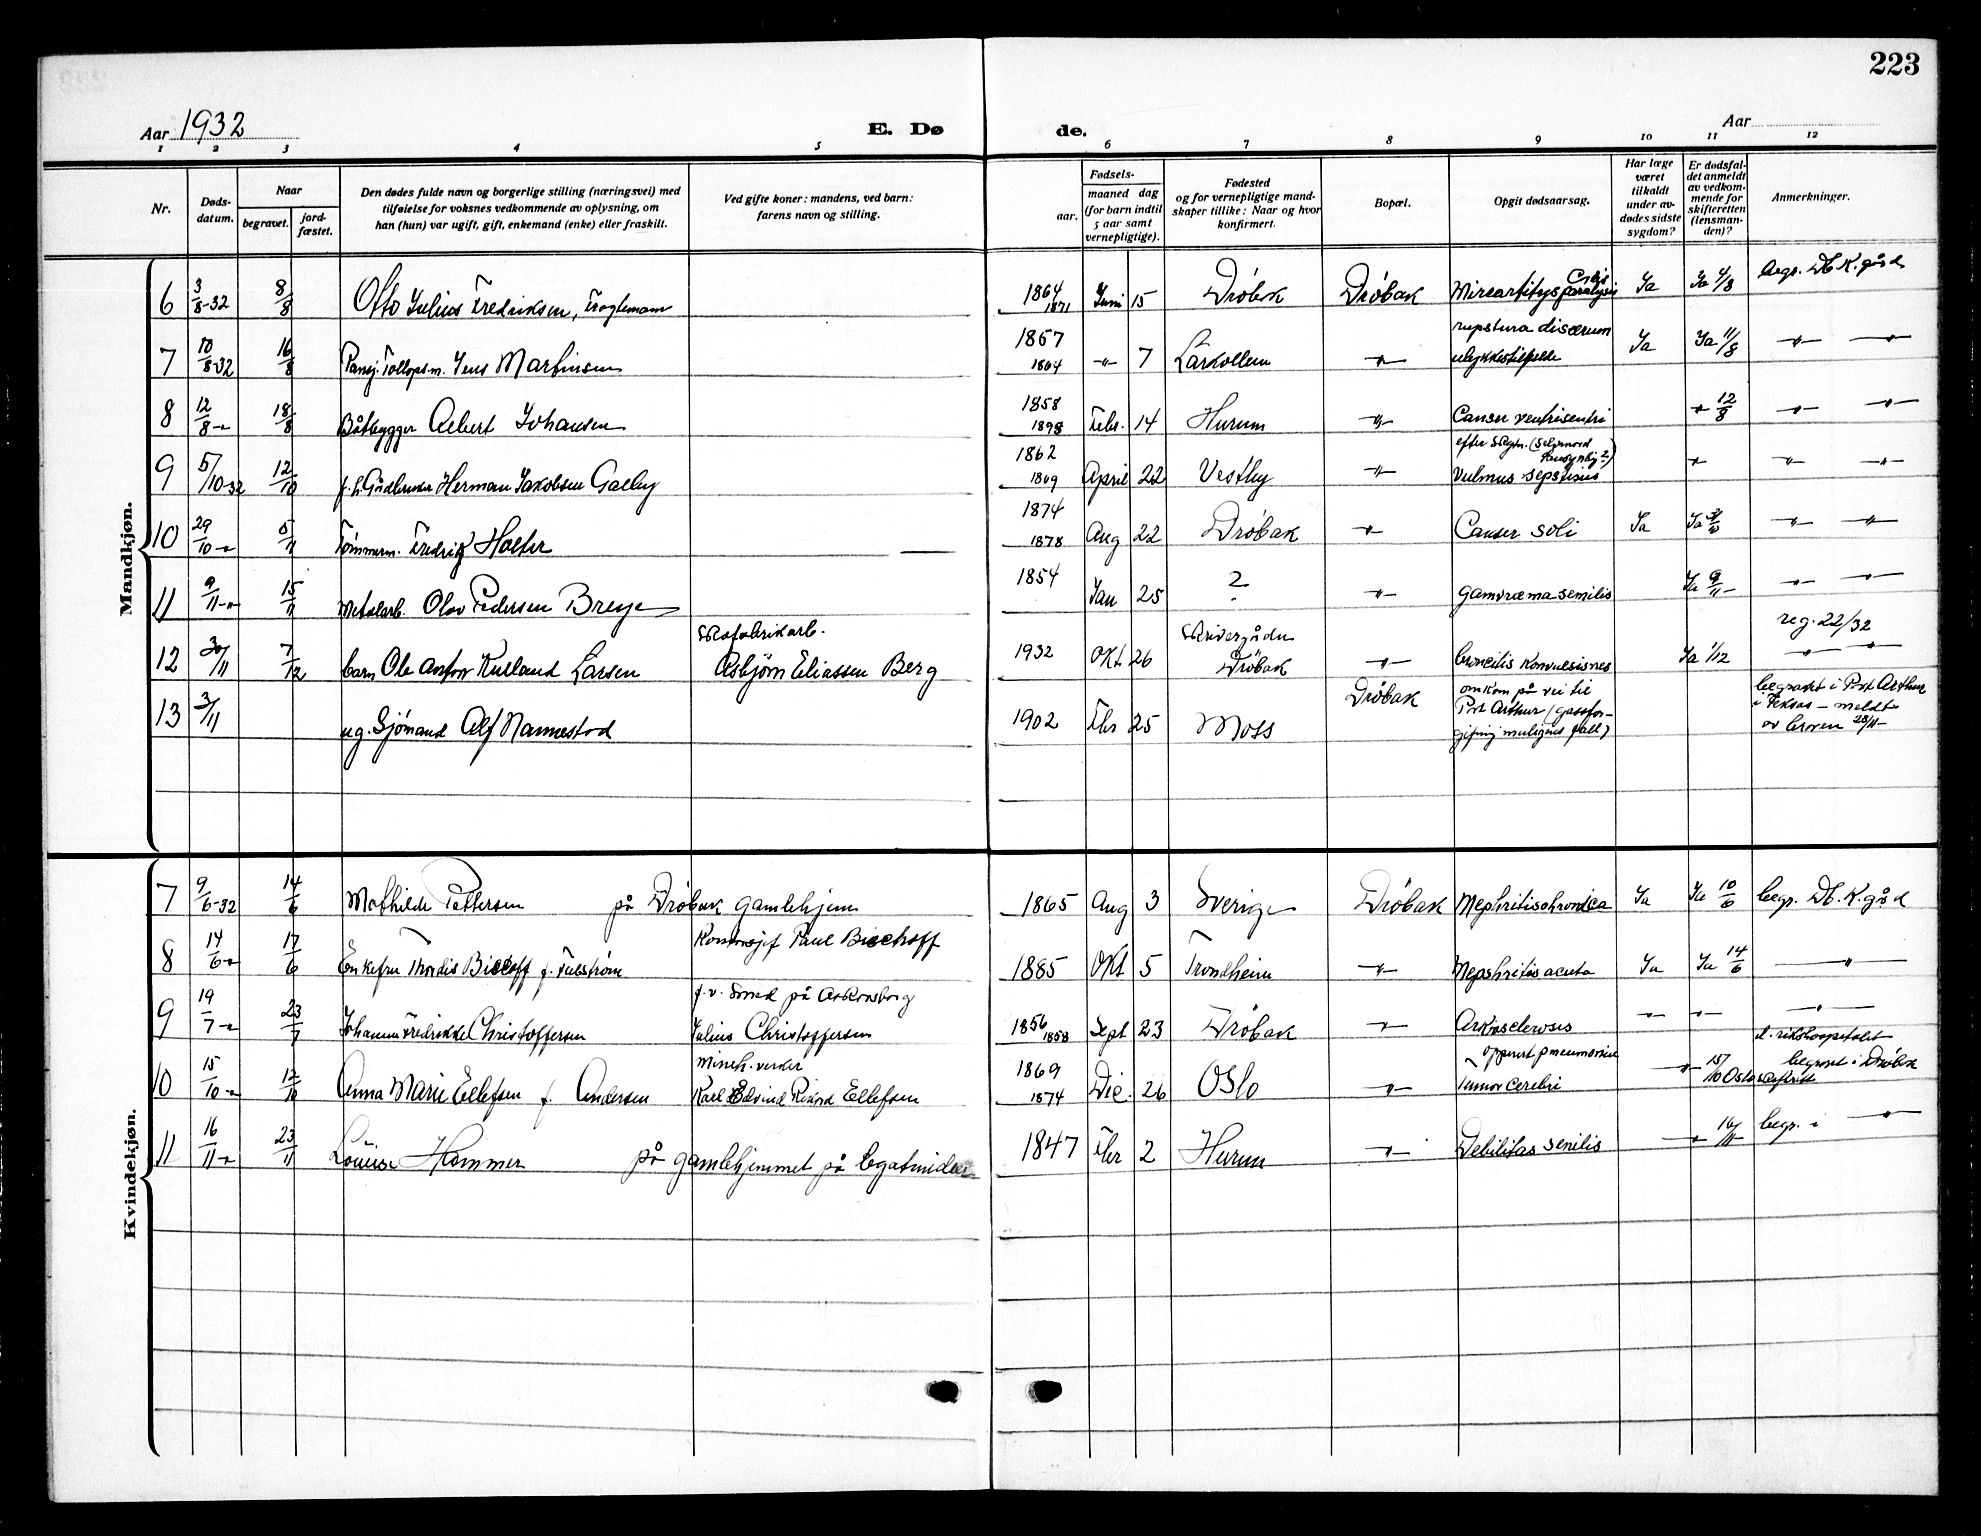 223
Aar 1932
E. Dø
de.
Aar
1 2 3 4 5 6 7 8 9 10 11 12
Nr.
Døds-
datum.
Naar
begravet.
jord-
fæstet.
Den dødes fulde navn og borgerlige stilling (næringsvei) med
tilføielse for voksnes vedkommende av oplysning, om
han (hun) var ugift, gift, enkemand (enke) eller fraskilt.
Ved gifte koner: mandens, ved barn:
farens navn og stilling.
Fødsels-
aar.
maaned dag
(for barn indtil
5 aar samt
vernepligtige).
Fødested
og for vernepligtige mand-
skaper tillike: Naar og hvor
konfirmert.
Bopæl.
Opgit dødsaarsag.
Har læge
været
tilkaldt
under av-
dødes sidste
sygdom?
Er dødsfal-
det anmeldt
av vedkom-
mende for
skifteretten
(lensman-
den)?
Anmerkninger.
Mandkjøn.
6 3/8-32 8/8 Otto Julius Fredriksen, 1864 1871 Juni 15 Drøbak Drøbak Ja Ja 4/8 begr. DK.K.gård
7 10/8-32 16/8 Jens Martinsen 1867 1864 -"- 7 Larkollen -"- ulykkestilfelle Ja Ja 11/8 -"- -"-
8 12/8 -"- 18/8 Båtbygger Albert Johansen 1858 1898 Febr. 14 Hurum -"- Canser ventrisentri -"- 12/8 -"- -"-
9 5/10-32 12/10 Herman Jakobsen Galby 1862 1869 April 22 Vestby -"- -"- -"- -"-
10 29/10 -"- 5/11 Tømmerm. Fredrik Holter 1874 1878 Aug 22 Drøbak -"- Canser Ja Ja -"- -"-
11 9/11 -"- 15/11 Metalarb. Olav Pedersen Breye 1854 Jan 25 ? -"- semilis Ja 9/11 -"- -"-
12 30/11 7/12 barn Ole Larsen Skofabrikarb.
Asbjørn Eliassen Berg 1932 Okt 26 Skivergården
Drøbak -"- Ja 1/12 reg. 22/32
-"- -"-
13 3/11 ug. Sjømand Alf Nannestad 1902 Fbr 25 Moss Drøbak omkom på vei til
Port Arthur (gassfor-
giftning muligens fall) begravet i Port Arthur
i Teksas - meldt
av broren 28/11-
Kvindekjøn.
7 9/6-32 14/6 Mathilde Pettersen på Drøbak gamlehjem 1865 Aug 3 Sverige Drøbak Nephritis chronica Ja Ja 10/6 begr. DK.K.gård
8 14/6 -"- 17/6 Enkefru Thordis Bischoff f. Paul Bischoff 1885 Okt 5 Trondheim -"- Nephritis acuta Ja Ja 14/6 -"-
9 19/7 -"- 23/7 Johanne Fredrikke Christoffersen f. v. Smed på Oskarsborg
Julius Christoffersen 1856 1858 Sept 23 Drøbak -"- -"- -"- -"-
10 15/10 -"- 12/10 Anna Marie Ellefsen f. Andersen Karl Edvind Ellefsen 1869 1874 Dec. 26 Oslo -"- Tumor cerebri -"- 15/10 Oslo skifterett d. rikshospitalet
begravet i Drøbak
11 16/11 -"- 23/11 Louise Hammer på gamlehjemmet på 1847 Fbr 2 Hurum -"- Debilitas senilis -"- 16/11 begr. i -"-